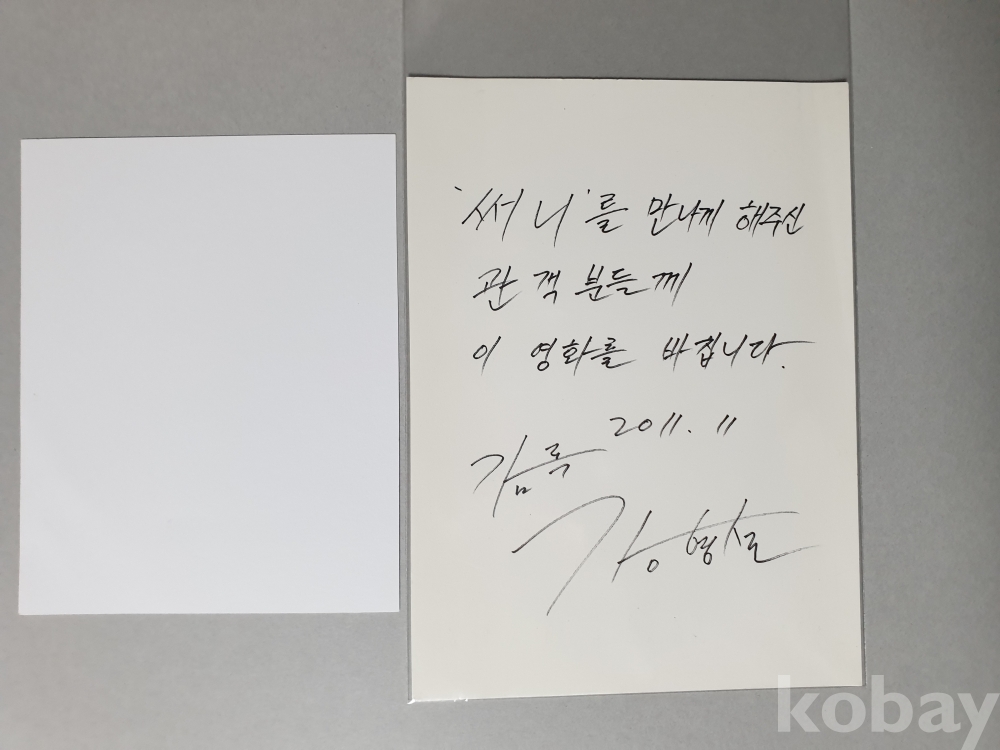 '써니'를 만나게 해주신
관객분들께
이 영화를 바칩니다.
2011. 11
감독
강형철
kobay